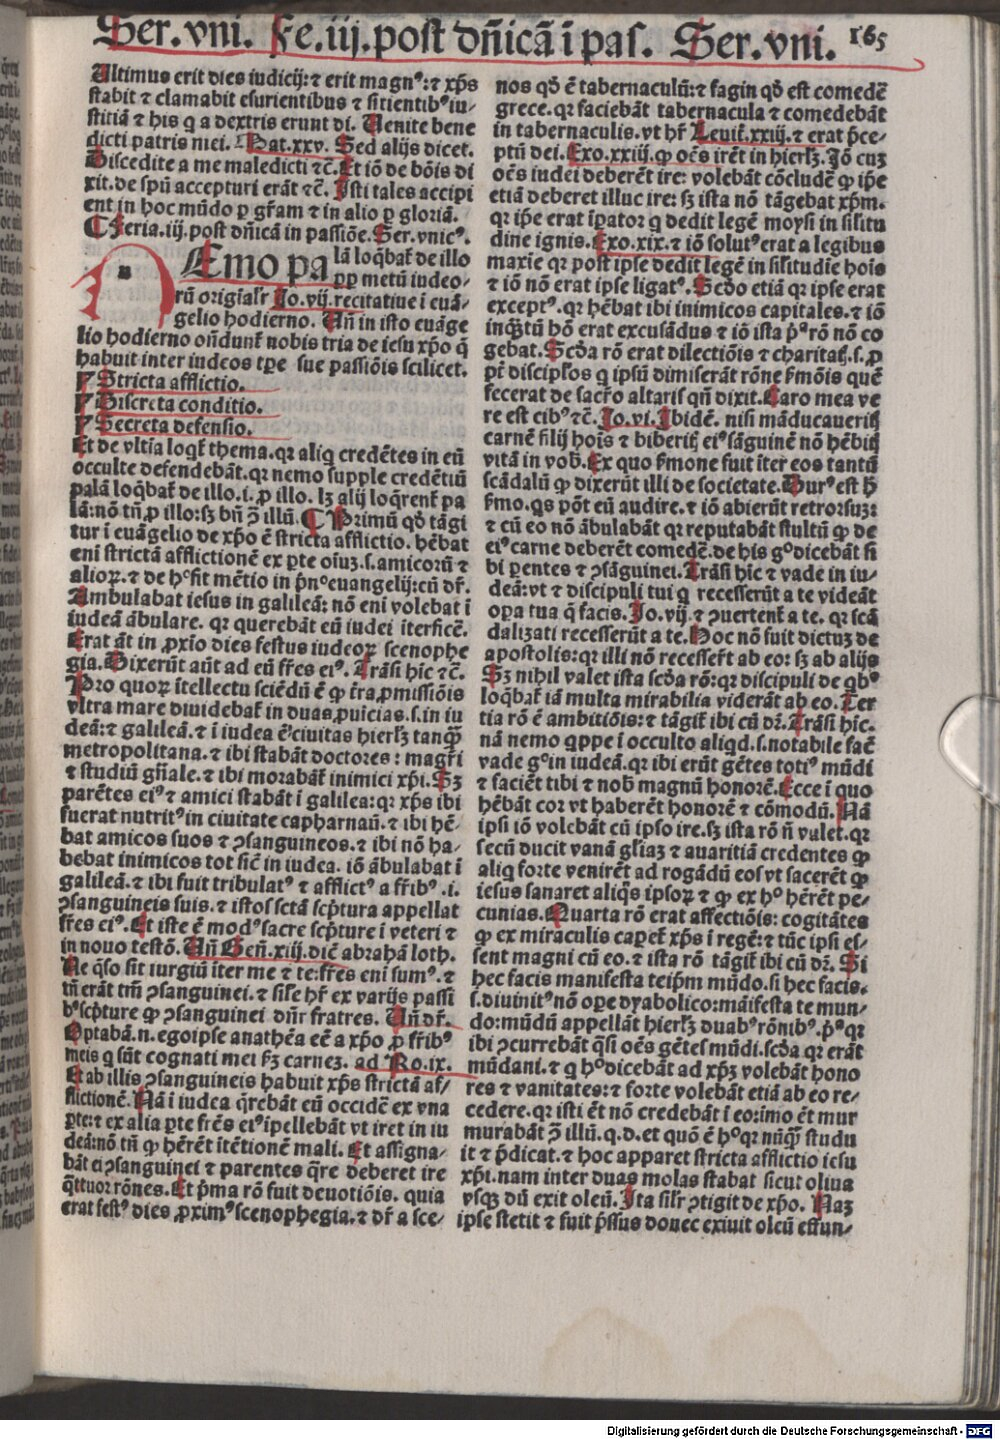 Ser.vni. Fe.iij.post dñicã ĩ pas. Ser.vni. 165
Ultimus erit dies iudicij:⁊ erit magnꝰ:⁊ xp̃s
stabit ⁊ clamabit esurientibus ⁊ sitientibꝰ iu-
stitiã ⁊ his q a dextris erunt dĩ. Uenite bene
dicti patris mei. Mat.xxv. Sed alijs dicet.
Discedite a me maledicti ⁊c̃. Et iõ de bõis di
xit. de spũ accepturi erãt ⁊c̃. Isti tales accipi
ent in hoc mũdo p gr̃am ⁊ in alio p gloriã.
Feria.iij.post dñicã in passiõe. Ser.vnicꝰ.
NEmo palã loq̃bat̃ de illo
ꝓp metũ iudeo-
rũ origĩalr̃ Jo.vij.recitatiue ĩ euã-
gelio hodierno. Uñ in isto euãge
lio hodierno oñdunt̃ nobis tria de iesu xp̃o q̃
habuit inter iudeos tp̃e sue passiõis scilicet.
Stricta afflictio.
Discreta conditio.
Secreta defensio.
Et de vltĩa loqt̃ thema. qr aliq credẽtes in eũ
occulte defendebãt. qr nemo supple credẽtiũ
palã loq̃bat̃ de illo.i.ꝓ illo. lꝫ alij loq̃rent̃ pa
lã:nõ tñ ꝓ illo:sꝫ bñ ↄ̃ illũ. Primũ qď tãgi
tur ĩ euãgelio de xp̃o ẽ stricta afflictio. hẽbat
eni strictã afflictionẽ ex pte oĩuꝫ.s.amicoꝝ ⁊
alioꝝ. ⁊ de hꝰ fit mẽtio in p̃nꝰ euangelij: cũ dr̃.
Ambulabat iesus in galileã: nõ eni volebat ĩ
iudeã ãbulare. qr querebãt eũ iudei ĩterficẽ.
Erat ãt in ꝓxĩo dies festus iudeoꝝ scenophe
gia. Dixerũt aũt ad eũ fr̃es eiꝰ. Trãsi hĩc ⁊c̃.
Pro quoꝝ ĩtellectu sciẽdũ ẽ ꝙ tr̃a ꝓmissiõis
vltra mare diuidebat̃ in duas ꝓuĩcias.s.in iu
deã:⁊ galileã.⁊ ĩ iudea ẽ ciuitas hierl̃ꝫ tanq̃ꝫ
metropolitana. ⁊ ibi stabãt doctores: magr̃i
⁊ studiũ gñale.⁊ ibi morabãt̃ inimici xp̃i. Sꝫ
parẽtes eiꝰ ⁊ amici stabãt ĩ galilea:qr xp̃s ibi
fuerat nutritꝰ in ciuitate capharnaũ. ⁊ ibi hẽ-
bat amicos suos ⁊ ↄsanguineos. ⁊ ibi nõ ha-
bebat inimicos tot sic̃ in iudea. iõ ãbulabat ĩ
galileã. ⁊ ibi fuit tribulatꝰ ⁊ afflictꝰ a fr̃ibꝰ .i.
ↄsanguineis suis. ⁊ istos sctã scp̃tura appellat
fr̃es eiꝰ. Et iste ẽ modꝰ sacre scp̃ture ĩ veteri ⁊
in nouo testõ. Uñ Geñ.xiij.dic̃ abrahã loth.
Ne q̃so sit iurgiũ ĩter me ⁊ te:fr̃es eni sumꝰ. ⁊
tñ erãt tm̃ ↄsanguinei. ⁊ silr̃ hr̃ ex varijs passi
bꝰ scp̃ture ꝙ ↄsanguinei dñr fratres. Uñ dr̃.
Optabã.n. egoipse anathẽa eẽ a xp̃o ꝓ fr̃ibꝰ
meis q sũt cognati mei ẝꝫ carneꝫ. ad Ro.ix.
Et ab illis ↄsanguineis habuit xp̃s strictã af-
flictionẽ. Nã ĩ iudea q̃rebãt eũ occidẽ ex vna
pte:⁊ ex alia pte fr̃es eiꝰ ĩpellebãt vt iret in iu
deã:nõ tñ ꝙ hẽrẽt ĩtẽtionẽ mali. Et assigna-
bãt ei ↄsanguinei ⁊ parentes q̃re deberet ire
q̃ttuor rõnes. Et p̃ma rõ fuit deuotiõis. quia
erat festꝰ dies ꝓximꝰ scenophegia.⁊ dr̃ a sce-
nos qď ẽ tabernaculũ: ⁊ fagin qď est comedẽ
grece. qr faciebãt tabernacula ⁊ comedebãt
in tabernaculis. vt hr̃ Leuit̃.xxiij.⁊ erat p̃ce-
ptũ dei. Exo.xxiij. ꝙ oẽs irẽt in hierl̃ꝫ. Iõ cuꝫ
oẽs iudei deberẽt ire: volebãt cõcludẽ ꝙ ip̃e
etiã deberet illuc ire: sꝫ ista nõ tãgebat xp̃m.
qr ip̃e erat ĩpator q dedit legẽ moysi in silitu
dine ignis. Exo.xix.⁊ iõ solutꝰ erat a legibus
maxie qr post ipse dedit legẽ in silitudie hoĩs
⁊ iõ nõ erat ipse ligatꝰ. Scďo etiã qr ipse erat
exceptꝰ. qr hẽbat ibi inimicos capitales. ⁊ iõ
inq̃tũ hõ erat excusãdus ⁊ iõ ista pᵃ rõ nõ co
gebat. Scďa rõ erat dilectiõis ⁊ charitat̃.s.ꝓ
pt̃ discipl̃os q ipsũ dimiserãt rõne ẝmõis quẽ
fecerat de sacr̃o altaris qñ dixit. Caro mea ve
re est cibꝰ ⁊c̃. Jo.vi. Ibidẽ. nisi mãducaueritꝭ
carnẽ filij hoĩs ⁊ biberitꝭ eiꝰ sãguinẽ nõ hẽbitꝭ
vitã in vob̃. Ex quo ẝmone fuit ĩter eos tantũ
scãdalũ ꝙ dixerũt illi de societate. Durꝰ est h̃
ẝmo. qs põt eũ audire. ⁊ iõ abierũt retrorsuꝫ:
⁊ cũ eo nõ ãbulabãt qr reputabãt stultũ ꝙ de
eiꝰ carne deberẽt comedẽ. de his gͦ dicebãt si
bi parentes ⁊ ↄsãguinei. Trãsi hĩc ⁊ vade in iu-
deã: vt ⁊ discipuli tui q recesserũt a te videãt
opa tua q̃ facis. Jo.vij. ⁊ ↄuertent̃ a te. qr scã
dalizati recesserũt a te. Hoc nõ fuit dictuꝫ de
apostolis: qr illi nõ recesser̃t ab eo: sꝫ ab alijs
Sꝫ nihil valet ista scďa rõ: qr discipuli de qbꝰ
loq̃bat̃ iã multa mirabilia viderãt ab eo. Ter
tia rõ ẽ ambitiõis: ⁊ tãgit̃ ibi cũ dr̃. Trãsi hĩc.
nã nemo qppe ĩ occulto aliqd.s.notabile fac̃
vade gͦ in iudeã. qr ibi erũt gẽtes totiꝰ mũdi
⁊ faciẽt tibi ⁊ nob̃ magnũ honorẽ. Ecce ĩ quo
hẽbãt cor vt haberẽt honorẽ ⁊ cõmodũ. Nã
ipsi iõ volebãt cũ ipso ire. sꝫ ista rõ ñ valet. qr
secũ ducit vanã gl̃iaꝫ ⁊ auaritiã credentes ꝙ
aliq forte venirẽt ad rogãdũ eos vt facerẽt ꝙ
iesus sanaret aliq̃s ipsoꝝ ⁊ ꝙ ex hꝰ hẽrẽt pe-
cunias. Quarta rõ erat affectiõis: cogitãtes
ꝙ ex miraculis capet̃ xp̃s ĩ regẽ: ⁊ tũc ipsi es-
sent magni cũ eo. ⁊ ista rõ tãgit̃ ibi cũ dr̃. Si
hec facis manifesta teip̃m mũdo. si hec facis.
s.diuinitꝰ nõ ope dyabolico: maĩfesta te mun-
do: mũdũ appellãt hierl̃ꝫ duabꝰ rõnibꝰ. pᵃ qr
ibi ↄcurrebãt q̃si oẽs gẽtes mũdi. scďa qr erãt
mũdani. ⁊ q hꝰ dicebãt ad xp̃ꝫ volebãt hono
res ⁊ vanitates: ⁊ forte volebãt etiã ab eo re-
cedere. qr isti ẽt nõ credebãt ĩ eo: imo ẽt mur
murabãt ↄ̃ illũ. q.d. et quõ ẽ hꝰ qr nũq̃ꝫ studu
it ⁊ p̃dicat. ⁊ hoc apparet stricta afflictio iesu
xp̃i. nam inter duas molas stabat sicut oliua
vsqꝫ dũ exit oleũ. Ita silr̃ ↄtigit de xp̃o. Naꝫ
ipse stetit ⁊ fuit p̃ssus donec exiuit oleũ effun-
Digitalisierung gefördert durch die Deutsche Forschungsgemeinschaft - DFG